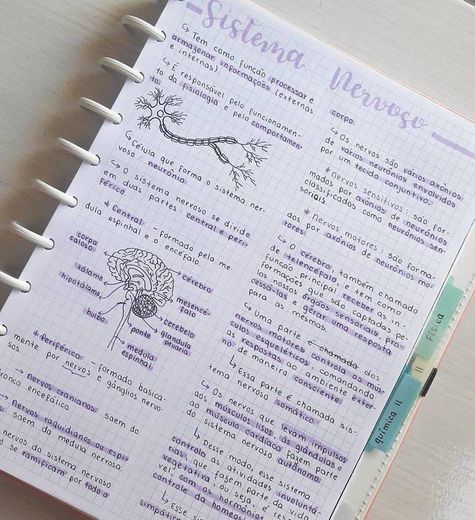 Sistema Nervoso
↳ Tem como função processar e
armagenar informações (externas
e internas)
↳ É responsável pelo funcionamen-
to da fisiologia e pelo comportamen-
to.
↳ Célula que forma o sistema ner-
voso: neurônio.
↳ O sistema nervoso se divide
em duas partes: central e peri-
férico
* Central - formado pela me-
dula espinhal e o encéfalo.
corpo
caloso
tálamo
hipotálamo
bulbo
ponte
medula
espinhal
cérebro
mesencé-
falo
cerebelo
glândula
pituitária
* periférico - formado basica-
mente por nervos e gânglios nervo-
sos.
→ nervos cranianos: saem do
tronco encefálico
→ nervos raquidianos ou espi-
saem da medula nervosa.
nervos do sistema nervoso
se ramificam por todo o
corpo.
↳ Os nervos são vários axônios
de vários neurônios envolvidos
por um tecido conjuntivo.
* nervos sensitivos: são for-
mados por axônios de neurônios
classificados como neurônios sen-
soriais
* Nervos motores: são forma-
dos por axônios de neurônios mo-
tores.
↳ O cérebro, também chamado
de telencéfalo, e tem como
função principal receber as in-
formações que são captadas pe-
los nossos órgãos sensoriais, pro-
cessá-las e gerar uma resposta
para as mesmas.
↳ Uma parte chamada dos
nervos motores controla os mús-
culos esqueléticos, comandando
as respostas ao ambiente exter-
no de maneira consciente.
↳ Essa parte é chamada sis-
tema nervoso somático.
↳ Os nervos que levam impulsos
aos músculos lisos, às glândulas e
ao músculo cardíaco fazem parte
do sistema nervoso autônomo.
↳ Desse modo, esse sistema
controla as atividades involuntá-
rias, que fazem parte da vida
vegetativa, ou seja, é res
vel com os hormônios
controle da homeos
↳ Esse si
simpático
Física
química II